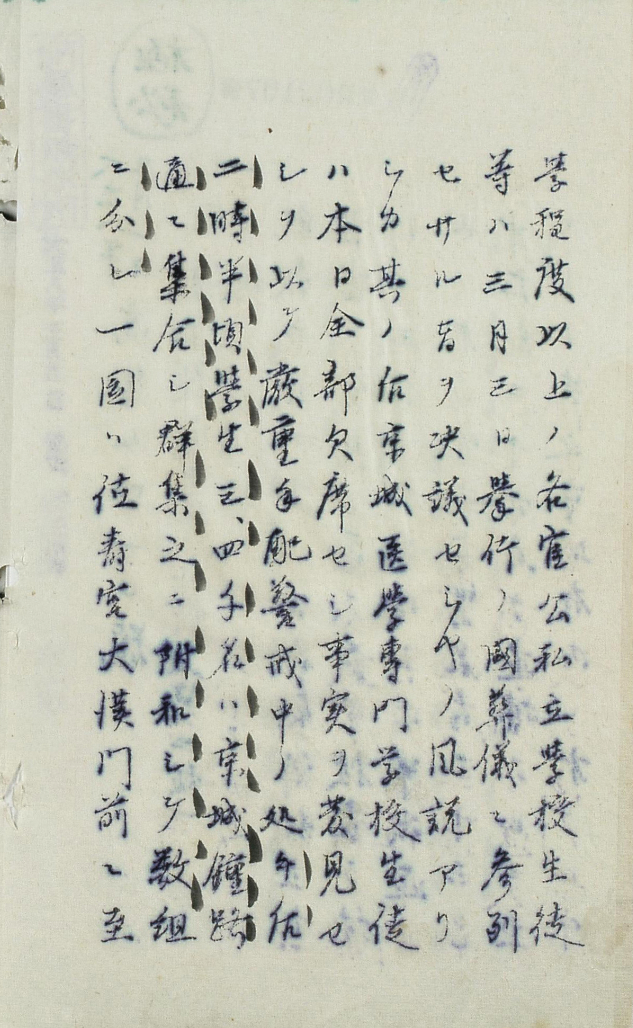 學程度以上ノ各官公私立學校生徒
等ハ三月三日擧行ノ國葬儀ニ參列
セサル旨ヲ决議セシヤノ風説アリ
シカ其ノ后京城医學専門学校生徒
ハ本日全部欠席セシ事実ヲ發見セ
シヲ以テ嚴重手配警戒中ノ処午后
二時半頃學生三、四千名ハ京城鍾路
通ニ集合シ群集之ニ附和シテ数組
ニ分レ一團ハ徳壽宮大漢門前ニ至